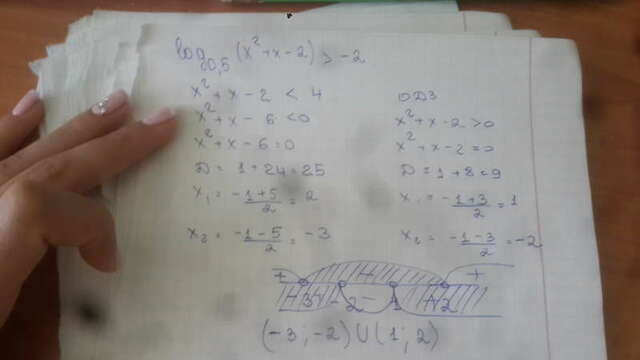 log₀,₅ (x² + x - 2) > -2
x² + x - 2 < 4
x² + x - 6 < 0
x² + x - 6 = 0
D = 1 + 24 = 25
x₁ = -1+5/2 = 2
x₂ = -1-5/2 = -3
ОДЗ
x² + x - 2 > 0
x² + x - 2 = 0
D = 1 + 8 = 9
x₁ = -1+3/2 = 1
x₂ = -1-3/2 = -2
+ +
-3 -2 - 1 2
(-3; -2) ∪ (1; 2)